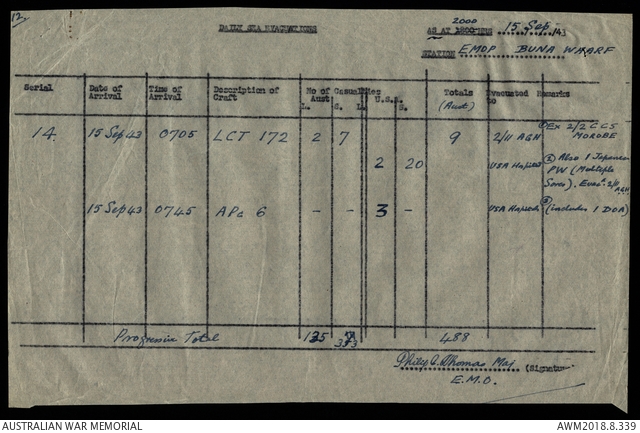 12.
DAILY SEA EVACUATIONS
2000
AS AT 1800 HRS 15 Sep /43
STATION EMOP BUNA WHARF
Serial Date of Arrival Time of Arrival Description of Craft No of Casualties Aust L. S. U.S.A. L. S. Totals (Aust) Evacuated to Remarks
14. 15 Sep 43 0705 LCT 172 2 7 9 2/11 AGH ① Ex 2/2 CCS MOROBE
2 20 USA Hospital ② Also 1 Japanese
PW (Multiple
Sores). Evac. 2/11 AGH
15 Sep 43 0745 APc 6 - - 3 - USA Hospital ③ (includes 1 DOA)
Progressive Total 135 353 488
Philip C. Thomas Maj (Signature
E.M.O.
AUSTRALIAN WAR MEMORIAL
AWM2018.8.339